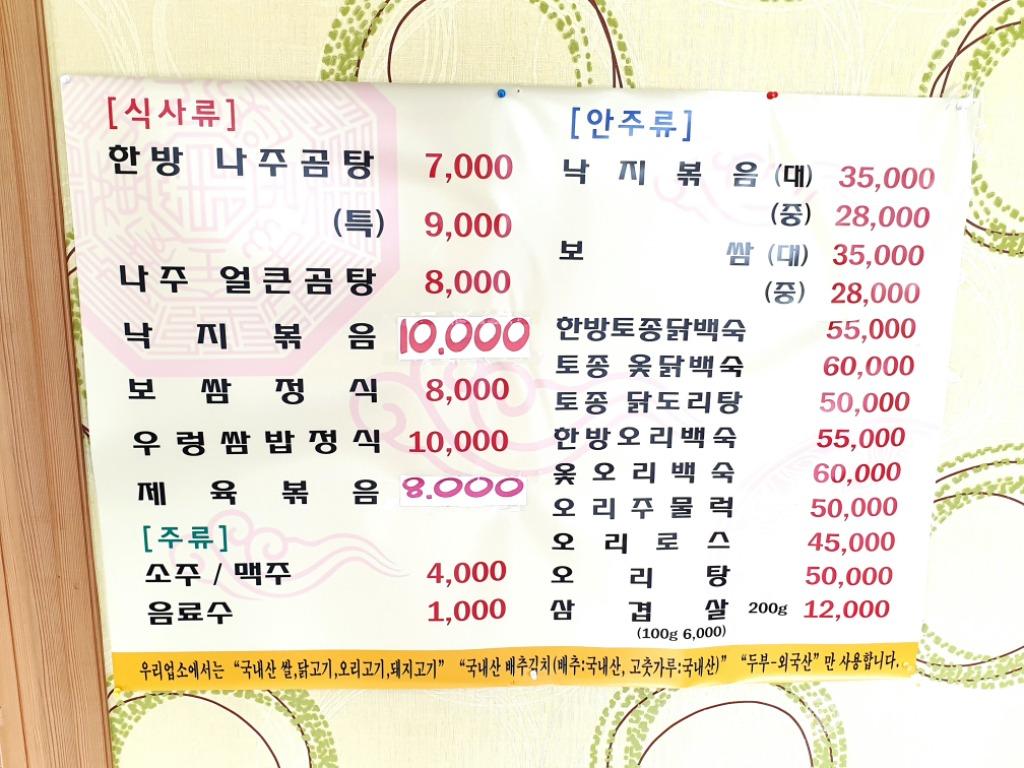 [식사류]
한방 나주곰탕 7,000
(특) 9,000
나주 얼큰곰탕 8,000
낙지볶음 10.000
보쌈정식 8,000
우렁쌈밥정식 10,000
제육볶음 8.000
[주류]
소주 / 맥주 4,000
음료수 1,000
[안주류]
낙지볶음 (대) 35,000
(중) 28,000
보쌈 (대) 35,000
(중) 28,000
한방토종닭백숙 55,000
토종 옻닭백숙 60,000
토종 닭도리탕 50,000
한방오리백숙 55,000
옻오리백숙 60,000
오리주물럭 50,000
오리로스 45,000
오리탕 50,000
삼겹살 200g 12,000
(100g 6,000)
우리업소에서는 “국내산 쌀,닭고기,오리고기,돼지고기” “국내산 배추김치(배추:국내산, 고춧가루:국내산)” “두부-외국산” 만 사용합니다.